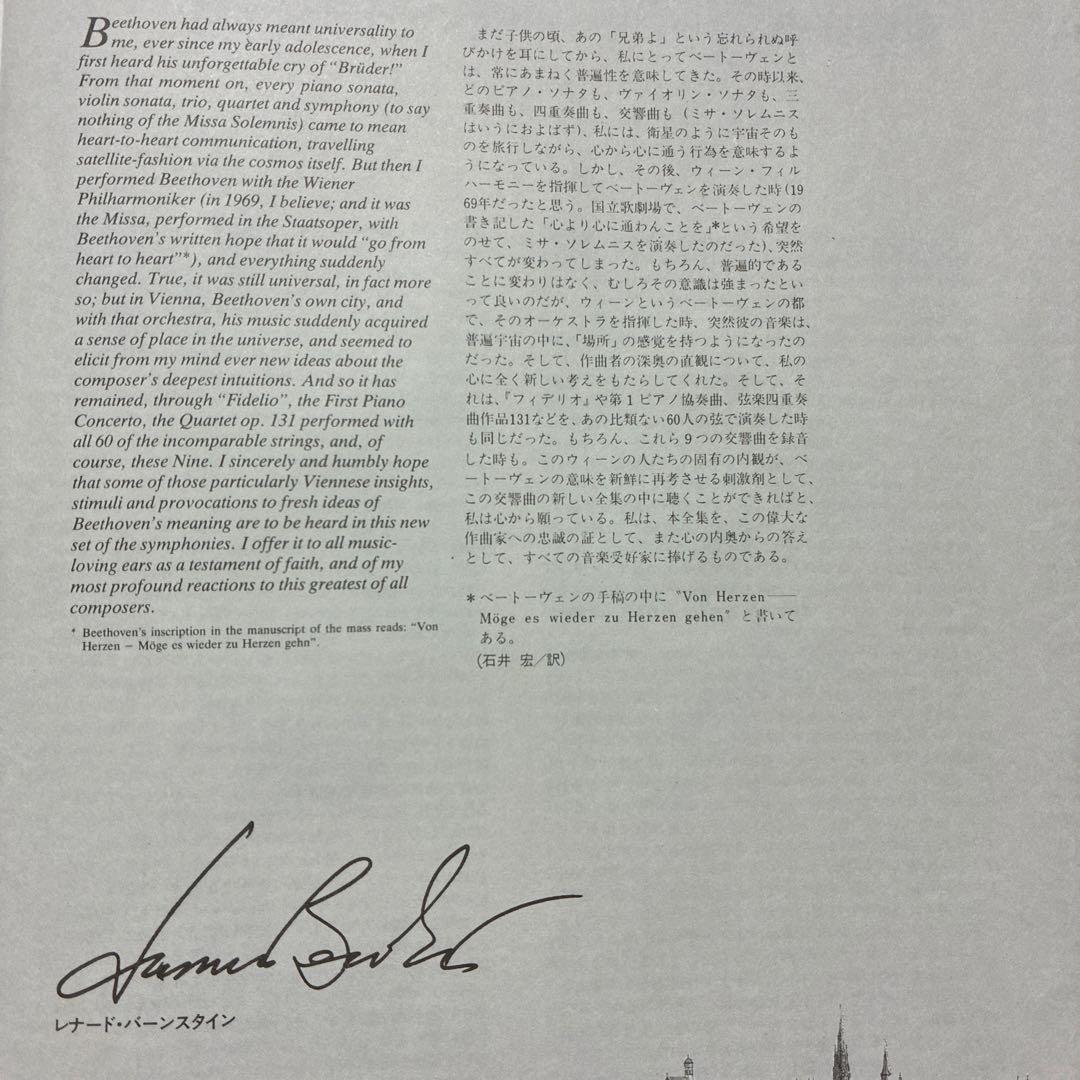 Beethoven had always meant universality to
me, ever since my early adolescence, when I
first heard his unforgettable cry of “Brüder!”
From that moment on, every piano sonata,
violin sonata, trio, quartet and symphony (to say
nothing of the Missa Solemnis) came to mean
heart-to-heart communication, travelling
satellite-fashion via the cosmos itself. But then I
performed Beethoven with the Wiener
Philharmoniker (in 1969, I believe; and it was
the Missa, performed in the Staatsoper, with
Beethoven’s written hope that it would “go from
heart to heart”*), and everything suddenly
changed. True, it was still universal, in fact more
so; but in Vienna, Beethoven’s own city, and
with that orchestra, his music suddenly acquired
a sense of place in the universe, and seemed to
elicit from my mind ever new ideas about the
composer’s deepest intuitions. And so it has
remained, through “Fidelio”, the First Piano
Concerto, the Quartet op. 131 performed with
all 60 of the incomparable strings, and, of
course, these Nine. I sincerely and humbly hope
that some of those particularly Viennese insights,
stimuli and provocations to fresh ideas of
Beethoven’s meaning are to be heard in this new
set of the symphonies. I offer it to all music-
loving ears as a testament of faith, and of my
most profound reactions to this greatest of all
composers.
* Beethoven’s inscription in the manuscript of the mass reads: “Von
Herzen – Möge es wieder zu Herzen gehn”.
まだ子供の頃、あの「兄弟よ」という忘れられぬ呼
びかけを耳にしてから、私にとってベートーヴェンと
は、常にあまねく普遍性を意味してきた。その時以来、
どのピアノ・ソナタも、ヴァイオリン・ソナタも、三
重奏曲も、四重奏曲も、交響曲も（ミサ・ソレムニス
はいうにおよばず）、私には、衛星のように宇宙そのも
のを旅行しながら、心から心に通う行為を意味するよ
うになっている。しかし、その後、ウィーン・フィル
ハーモニーを指揮してベートーヴェンを演奏した時(19
69年だったと思う。国立歌劇場で、ベートーヴェンの
書き記した「心より心に通わんことを」*という希望を
のせて、ミサ・ソレムニスを演奏したのだった)、突然
すべてが変わってしまった。もちろん、普遍的である
ことに変りはなく、むしろその意識は強まったとい
って良いのだが、ウィーンというベートーヴェンの都
で、そのオーケストラを指揮した時、突然彼の音楽は、
普遍宇宙の中に、「場所」の感覚を持つようになったの
だった。そして、作曲者の深奥の直観について、私の
心に全く新しい考えをもたらしてくれた。そして、そ
れは、『フィデリオ』や第１ピアノ協奏曲、弦楽四重奏
曲作品131などを、あの比類ない60人の弦で演奏した時
も同じだった。もちろん、これら９つの交響曲を録音
した時も。このウィーンの人たちの固有の内観が、ベ
ートーヴェンの意味を新鮮に再考させる刺激剤として、
この交響曲の新しい全集の中に聴くことができればと、
私は心から願っている。私は、本全集を、この偉大な
作曲家への忠誠の証として、また心の内奥からの答え
として、すべての音楽受好家に捧げるものである。
*ベートーヴェンの手稿の中に〝Von Herzen——
Möge es wieder zu Herzen gehen〟と書いて
ある。
(石井 宏／訳)
レナード・バーンスタイン